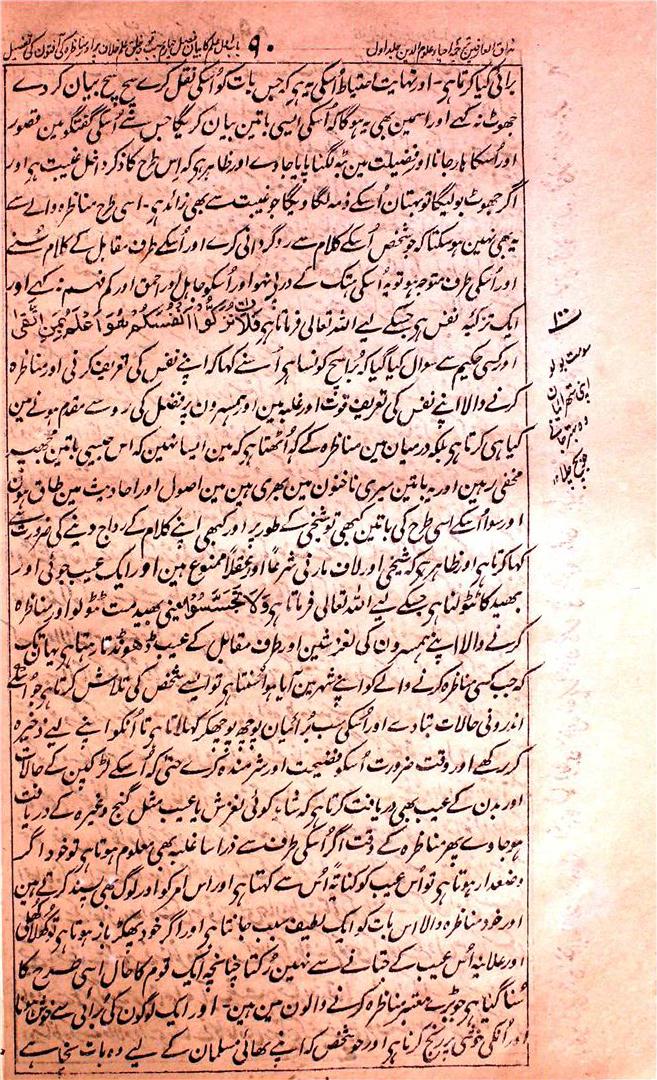 مذاق العارفین ترجمہ احیاء علوم الدین جلد اول
۹۰
باب اول علم کا بیان فصل چہارم
برائی کیا کرتا ہی۔ اور نہایت احتیاط اُسکی یہ ہو کہ جس بات کو اُسکی نقل کرے سچ سچ بیان کر دے
جھوٹ نہ کہے اور اسمین بھی یہ ہو گا کہ اُسکی ایسی باتین بیان کریگا جس سے اُسکی گفتگو مین قصور
اور اُسکا ہار جانا اور فضیلت مین بٹہ لگنا پایا جاوے اور ظاہر ہی کہ اِس طرح کا ذکر داخل غیبت ہی اور
اگر جھوٹ بولیگا تو بہتان اُسکے ذمہ لگاویگا جو غیبت سے بھی زائد ہی۔ اسی طرح مناظرہ والے سے
یہ بھی نہین ہو سکتا کہ جو شخص اُسکے کلام سے روگردانی کرے اور اُسکے طرف مقابل کے کلام سُنے
اور اُسکی طرف متوجہ ہو تو یہ اُسکی ہتک کے درپی نہو اور اُسکو جاہل اور احمق اور کم فہم نہ کہے اور
ایک تزکیۂ نفس ہی جسکے لیے اللہ تعالی فرماتا ہی فَلَا تُزَكُّوْا اَنْفُسَكُمْ هُوَ اَعْلَمُ بِمَنِ اتَّقٰی
اور کسی حکیم سے سوال کیا گیا کہ بُرا سچ کونسا ہی اُسنے کہا کہ اپنے نفس کی تعریف کرنی اور مناظرہ
کرنے والا اپنے نفس کی تعریف قوت اور غلبہ مین اور ہمسرون پر فضل کی رو سے مقدم ہونے مین
کیا ہی کرتا ہی بلکہ درمیان مین مناظرہ کے کہ اُٹھتا ہی کہ مین ایسا نہین کہ اس جیسی باتین مجھپر
مخفی رہین اور یہ باتین میری ناخنون مین بھری ہین مین اصول اور احادیث مین طاق ہون
اور سوا اُسکے اسی طرح کی باتین کبھی تو شیخی کے طور پر اور کبھی اپنے کلام کے رواج دینے کی ضرورت سے
کہا کرتا ہی اور ظاہر ہی کہ شیخی اور لاف مارنی شرعاً اور عقلاً ممنوع ہین اور ایک عیب جوئی اور
بھید کا ٹٹولنا ہی جسکے لیے اللہ تعالی فرماتا ہی وَلَا تَجَسَّسُوْا یعنی بھید مت ٹٹولو اور مناظرہ
کرنے والا اپنے ہمسرون کی لغزشین اور طرف مقابل کے عیب ڈھونڈتا رہتا ہی یہانتک
کہ جب کسی مناظرہ کرنے والے کو اپنے شہر مین آیا ہوا سُنتا ہی تو ایسے شخص کی تلاش کرتا ہی جو اُسکے
اندرونی حالات بتا دے اور اُسکی سب بُرائیان پوچھ پوچھکر کہلاتا ہی تا اُنکو اپنے لیے ذخیرہ
کر رکھے اور وقت ضرورت اُسکو فضیحت اور شرمندہ کرے حتی کہ اُسکے لڑکپن کے حالات
اور بدن کے عیب بھی دریافت کرتا ہی کہ شاید کوئی لغزش یا عیب مثل گنج وغیرہ کے دریافت
ہو جاوے پھر مناظرہ کے وقت اگر اُسکی طرف سے ذرا سا غلبہ بھی معلوم ہوتا ہی تو خود اگر
وضعدار ہوتا ہی تو اُس عیب کو کنایۃً اُس سے کہتا ہی اور اس امر کو اور لوگ بھی پسند کرتے ہین
اور خود مناظرہ والا اس بات کو ایک لطیف سبب جانتا ہی اور اگر خود پھکڑ باز ہوتا ہی تو کھلا کھلی
اور علانیہ اُس عیب کے جتانے سے نہین رُکتا چنانچہ ایک قوم کا حال اسی طرح کا
سُنا گیا ہی جو بڑے معتبر مناظرہ کرنے والون مین ہین۔ اور ایک لوگون کی بُرائی سے خوش ہونا
اور اُنکی خوشی پر رنج کرنا ہی اور جو شخص کہ اپنے بھائی مسلمان کے لیے وہ بات نچاہے
سو مت بولو
اپنی ستھرائیان
وہ بہتر جانے
جو بچ چلا